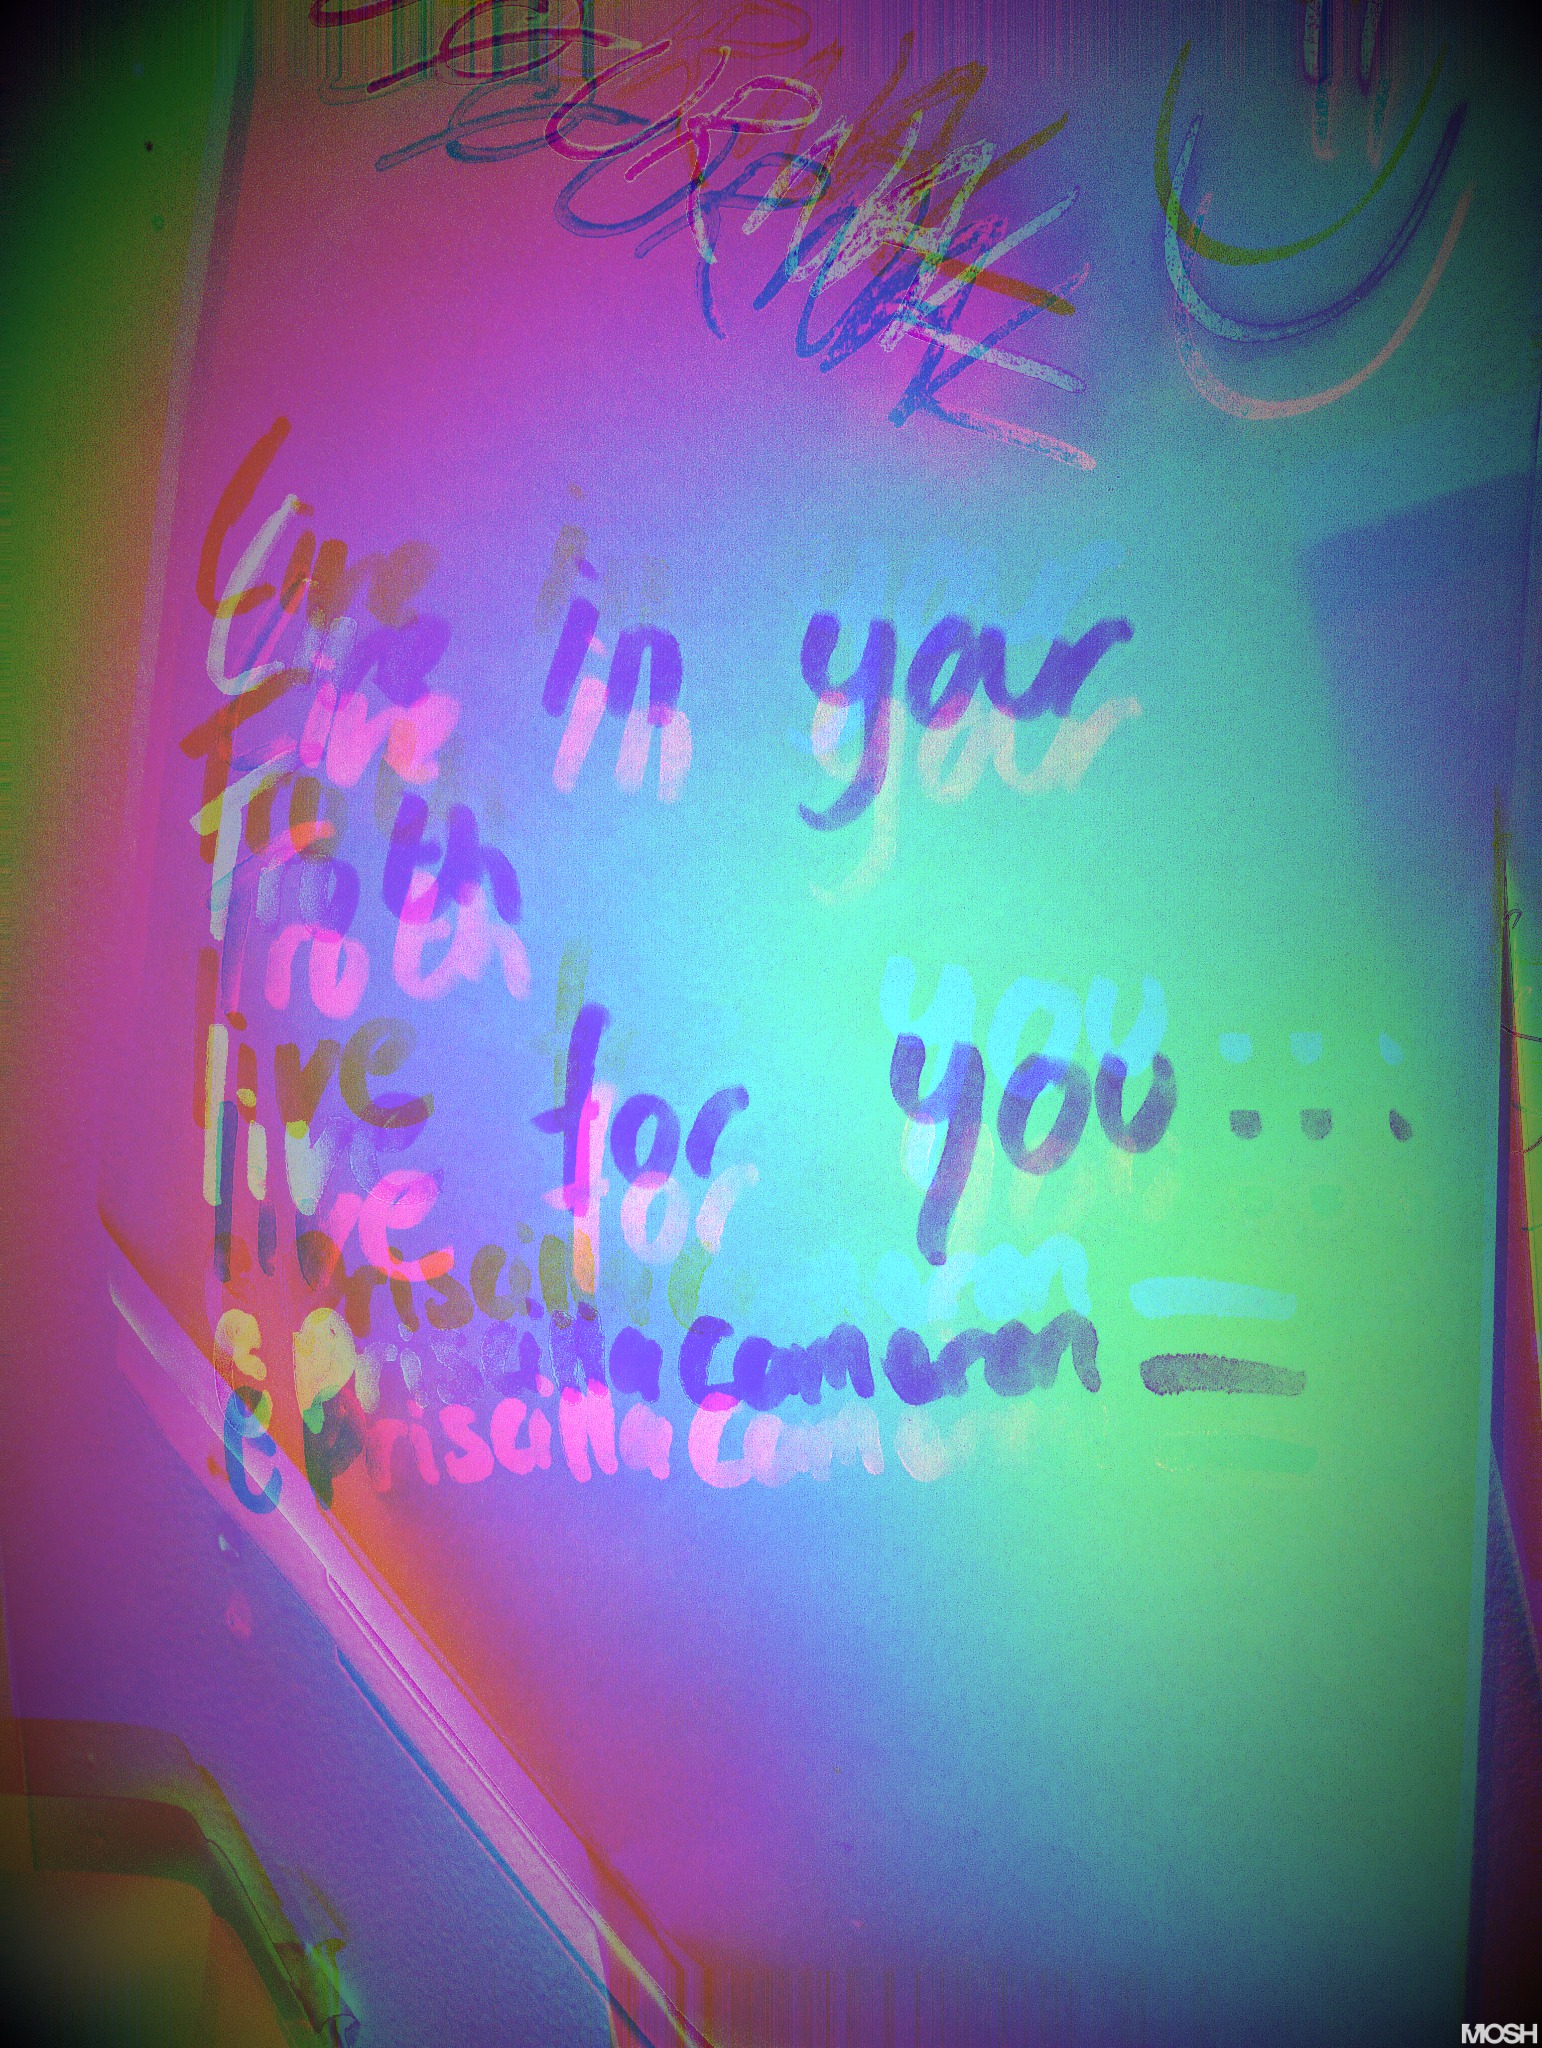 Live in your
Truth
live for you...
@Priscillacameron =
MOSH